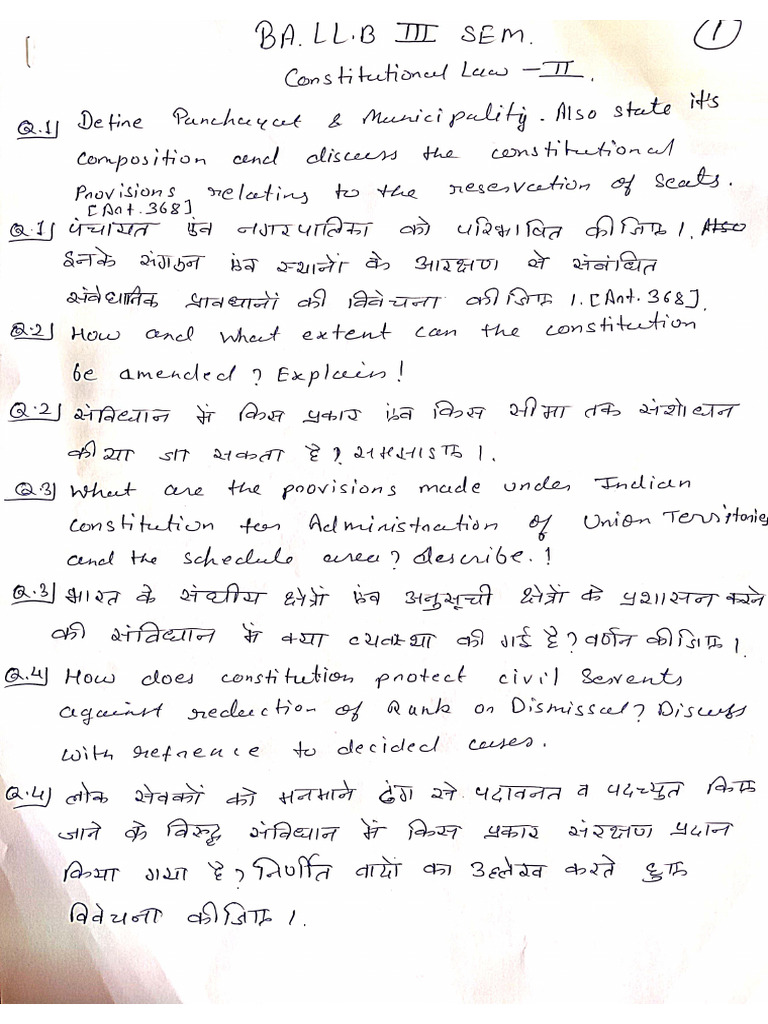 BA.LL.B III SEM. 1
Constitutional Law - II.
Q.1) Define Panchayat & Municipality. Also state it's
composition and discuss the constitutional
Provisions relating to the reservation of Seats.
[Art. 368]
Q.1) पंचायत एंव नगरपालिका को परिभाषित कीजिए। Also
इनके संगठन एंव स्थानों के आरक्षण से संबंधित
संवैधानिक प्रावधानों की विवेचना कीजिए। [Art. 368].
Q.2) How and what extent can the constitution
be amended? Explain!
Q.2) संविधान में किस प्रकार एंव किस सीमा तक संशोधन
कीया जा सकता है? समझाइए।
Q.3) What are the provisions made under Indian
constitution for Administration of Union Territories
and the schedule area? describe.!
Q.3) भारत के संघीय क्षेत्रों एंव अनुसूची क्षेत्रों के प्रशासन करने
की संविधान में क्या व्यवस्था की गई है? वर्णन कीजिए।
Q.4) How does constitution protect civil Servents
against reduction of Rank or Dismissal? Discuss
with refrence to decided cases.
Q.4) लोक सेवकों को मनमाने ढंग से पदावनत व पदच्युत किए
जाने के विरुद्ध संविधान में किस प्रकार संरक्षण प्रदान
किया गया है? निर्णीत वादों का उल्लेख करते हुए
विवेचना कीजिए।